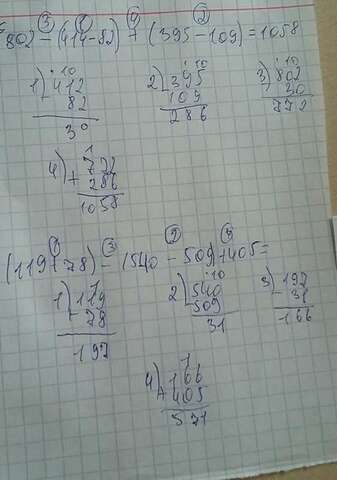 ③ ① ④ ②
802 - (414 - 82) + (395 - 109) = 1058
1) 412
- 82
30
2) 395
- 109
286
3) 802
- 30
772
4) 772
+ 286
1058
① ③ ② ④
(119 + 78) - (540 - 509) + 405 =
1) 119
78
197
2) 540
- 509
31
3) 197
- 31
166
4) 166
+ 405
571